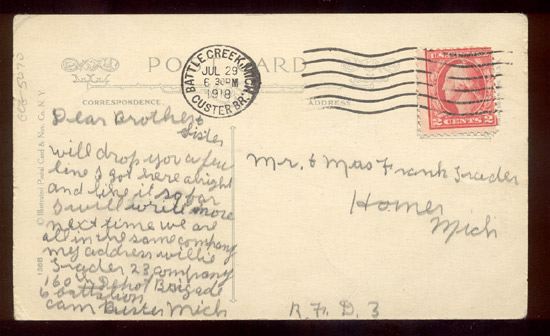 POST CARD
BATTLE CREEK, MICH.
JUL 29
6 30PM
1918
CUSTER BR.
2 CENTS 2
CORRESPONDENCE
ADDRESS
CCC 5075
© Illustrated Postal Card & Nov. Co. N. Y.
136B
Dear Brother &
Sister
will drop you a few
line I got here alright
and like it so far
I will write more
next time we are
all in the same company
my address will be
23 company
160 Depot Brigade
6 battalion
Cam Buster Mich
Mr. & Mrs Frank
Homer
Mich
R. F. D. 3